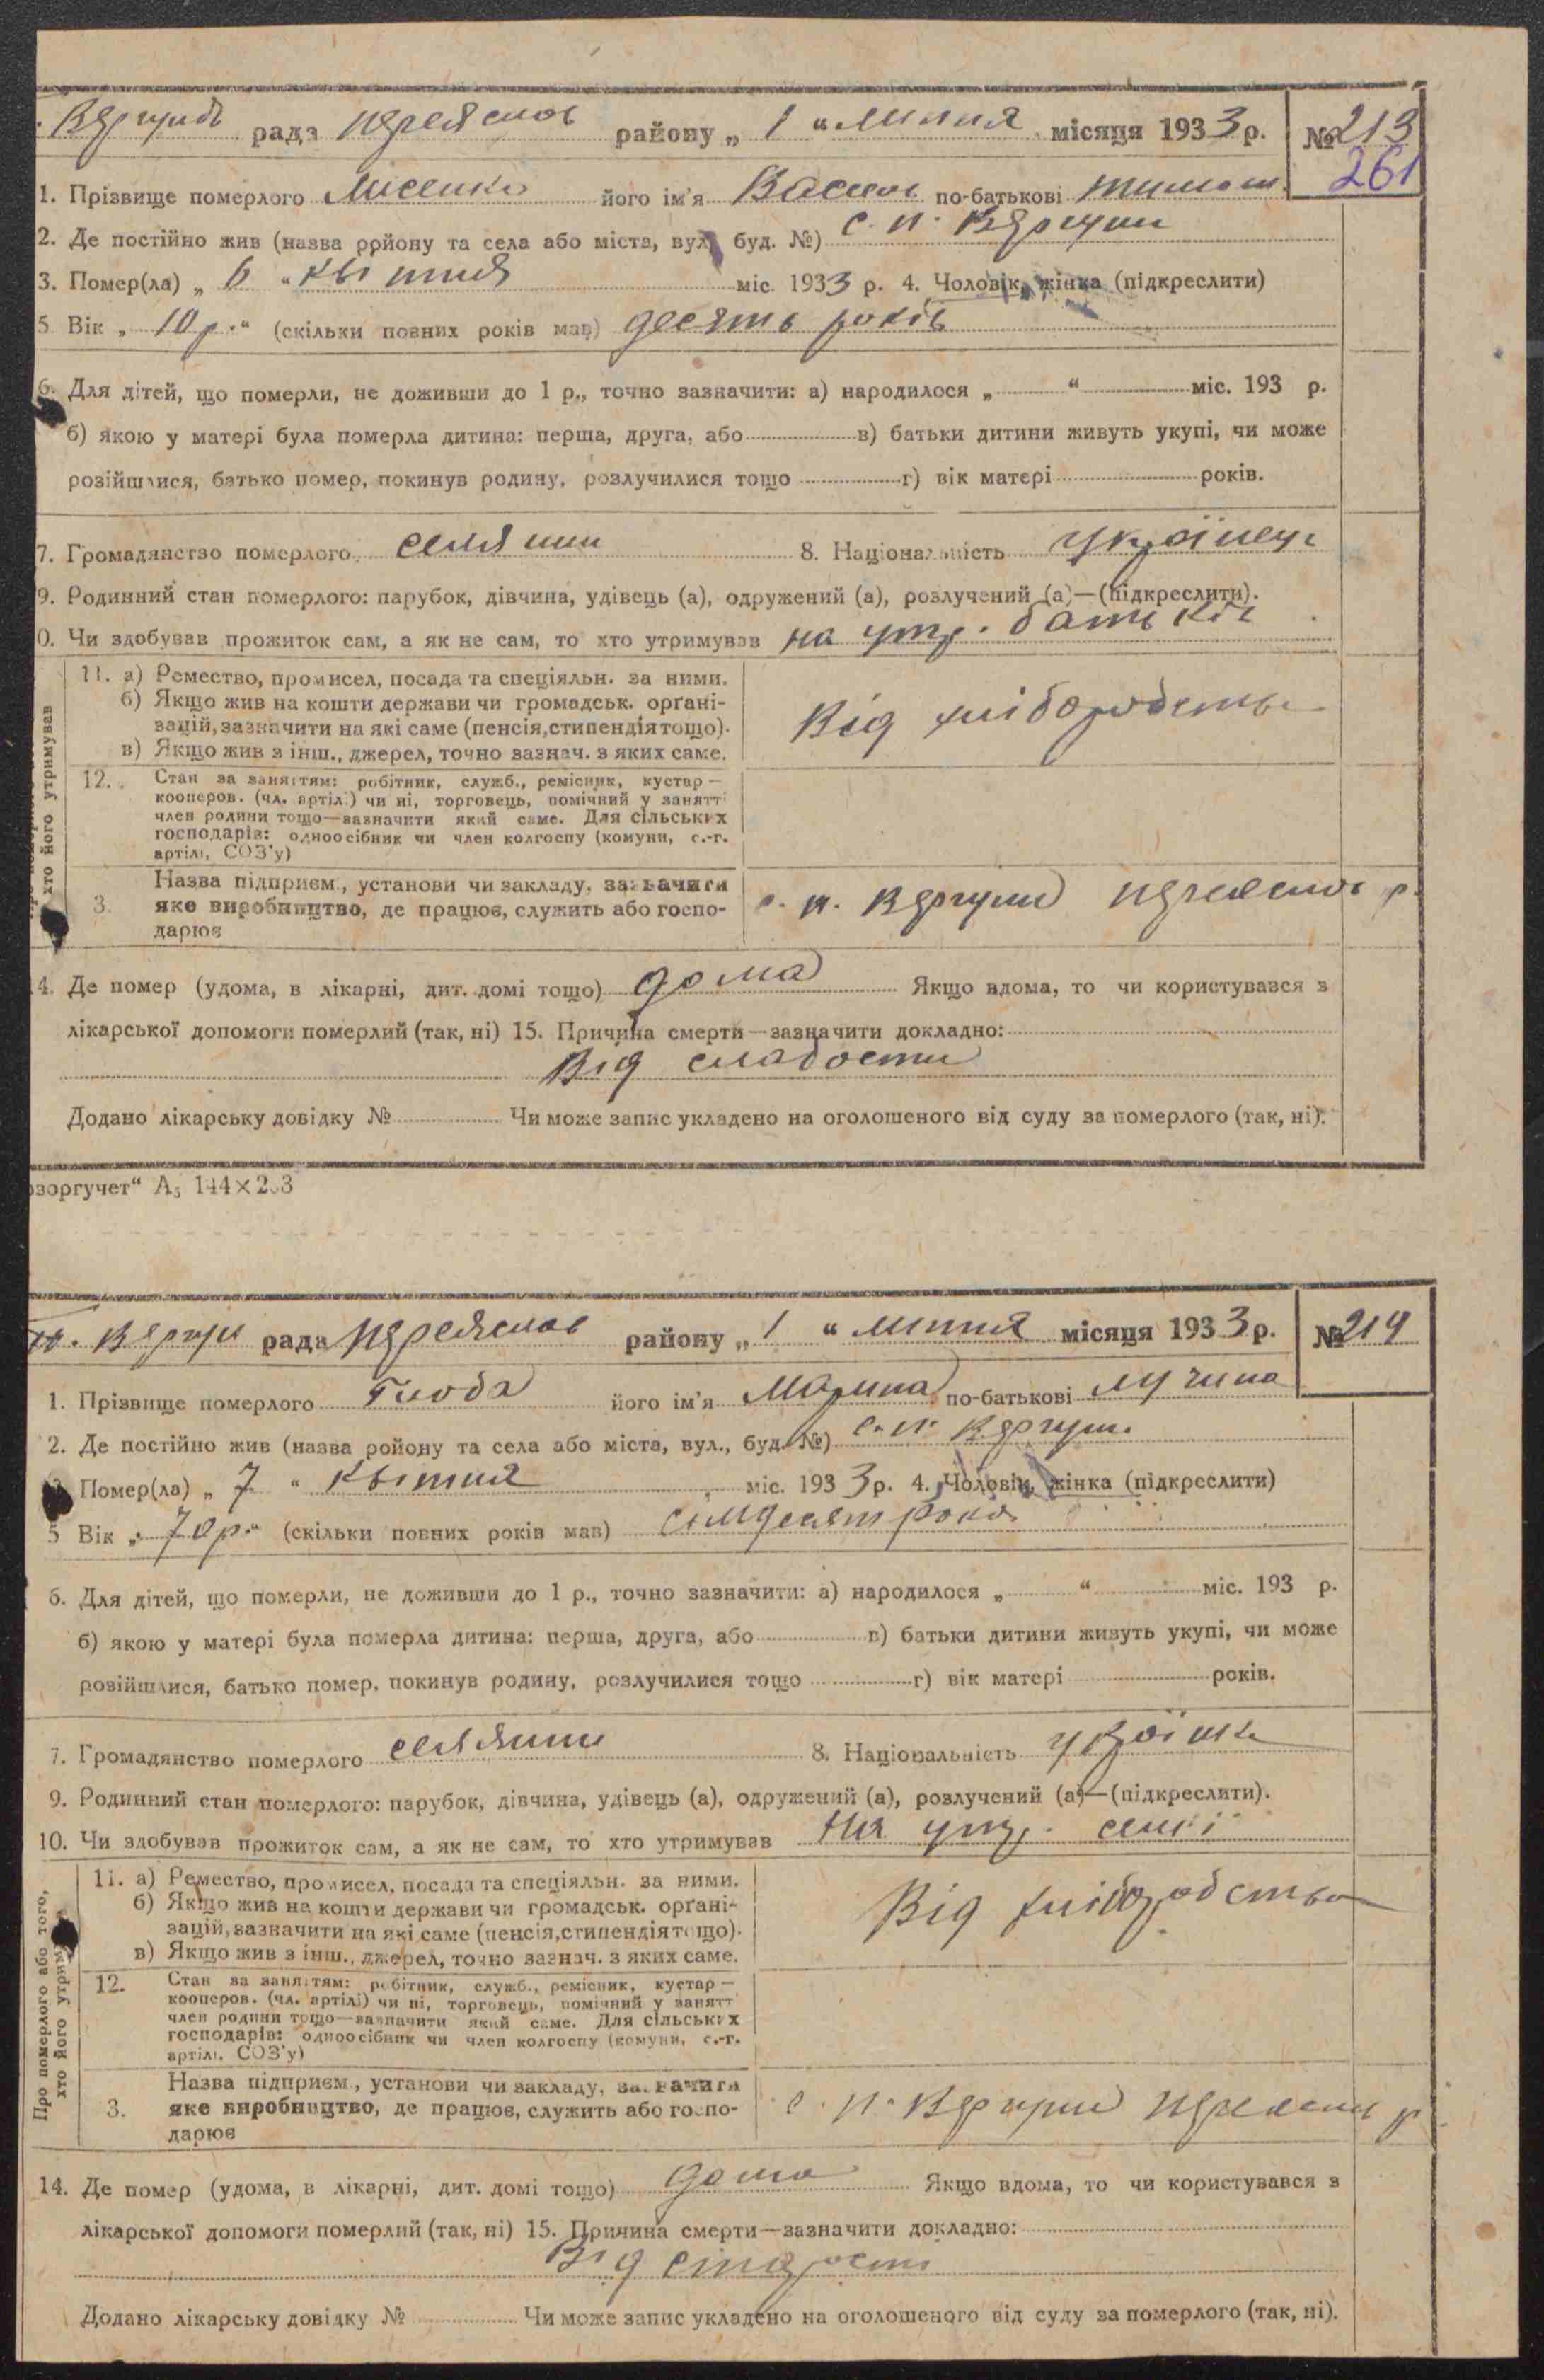 Вергунів рада Переяслов району „ 1 “ липня місяця 1933 р. № 213
261
1. Прізвище померлого Лисенко його ім'я Василь по-батькові Тимош.
2. Де постійно жив (назва ройону та села або міста, вул. буд. №) с. п. Вергуни
3. Помер(ла) „ 6 “ квітня міс. 1933 р. 4. Чоловік, жінка (підкреслити)
5 Вік „ 10 р. “ (скільки повних років мав) десять років
6. Для дітей, що померли, не доживши до 1 р., точно зазначити: а) народилося „ “ міс. 193 р.
б) якою у матері була померла дитина: перша, друга, або в) батьки дитини живуть укупі, чи може
розійшлися, батько помер, покинув родину, розлучилися тощо г) вік матері років.
7. Громадянство померлого селянин 8. Національність українець
9. Родинний стан померлого: парубок, дівчина, удівець (а), одружений (а), розлучений (а)—(підкреслити).
0. Чи здобував прожиток сам, а як не сам, то хто утримував на утр. батьків
хто його утримував
11. а) Ремество, промисел, посада та спеціяльн. за ними.
б) Якщо жив на кошти держави чи громадськ. орґані-
зацій, зазначити на які саме (пенсія, стипендія тощо).
в) Якщо жив з інш., джерел, точно зазнач. з яких саме.
Від хліборобства
12. Стан за заняттям: робітник, служб., ремісник, кустар —
кооперов. (чл. артілі) чи ні, торговець, помічний у занятті
член родини тощо—зазначити який саме. Для сільських
господарів: одноосібник чи член колгоспу (комуни, с.-г.
артілі, СОЗ'у)
3. Назва підприєм., установи чи закладу, зазначити
яке виробництво, де працює, служить або госпо-
дарює
с. п. Вергуни Переяслов р.
4. Де помер (удома, в лікарні, дит. домі тощо) дома Якщо вдома, то чи користувався з
лікарської допомоги померлий (так, ні) 15. Причина смерти—зазначити докладно:
Від слабости
Додано лікарську довідку № Чи може запис укладено на оголошеного від суду за померлого (так, ні).
озоргучет“ А₅ 144×203
п. Вергун рада Переяслов району „ 1 “ липня місяця 1933 р. № 214
1. Прізвище померлого його ім'я Марина по-батькові
2. Де постійно жив (назва ройону та села або міста, вул., буд. №) с. п. Вергун.
Помер(ла) „ 7 “ квітня міс. 1933 р. 4. Чоловік, жінка (підкреслити)
5 Вік „ 70 р. “ (скільки повних років мав) сімдесят років
6. Для дітей, що померли, не доживши до 1 р., точно зазначити: а) народилося „ “ міс. 193 р.
б) якою у матері була померла дитина: перша, друга, або в) батьки дитини живуть укупі, чи може
розійшлися, батько помер, покинув родину, розлучилися тощо г) вік матері років.
7. Громадянство померлого селянин 8. Національність
9. Родинний стан померлого: парубок, дівчина, удівець (а), одружений (а), розлучений (а)—(підкреслити).
10. Чи здобував прожиток сам, а як не сам, то хто утримував На утр. сем'ї
Про померлого або того,
хто його утрим
11. а) Ремество, промисел, посада та спеціяльн. за ними.
б) Якщо жив на кошти держави чи громадськ. орґані-
зацій, зазначити на які саме (пенсія, стипендія тощо).
в) Якщо жив з інш., джерел, точно зазнач. з яких саме.
Від хліборобства
12. Стан за заняттям: робітник, служб., ремісник, кустар —
кооперов. (чл. артілі) чи ні, торговець, помічний у занятт
член родини тощо—зазначити який саме. Для сільських
господарів: одноосібник чи член колгоспу (комуни, с.-г.
артілі, СОЗ'у)
3. Назва підприєм., установи чи закладу, зазначити
яке виробництво, де працює, служить або госпо-
дарює
с. п. Вергуни Переяслов р.
14. Де помер (удома, в лікарні, дит. домі тощо) дома Якщо вдома, то чи користувався з
лікарської допомоги померлий (так, ні) 15. Причина смерти—зазначити докладно:
Від старости
Додано лікарську довідку № Чи може запис укладено на оголошеного від суду за померлого (так, ні).